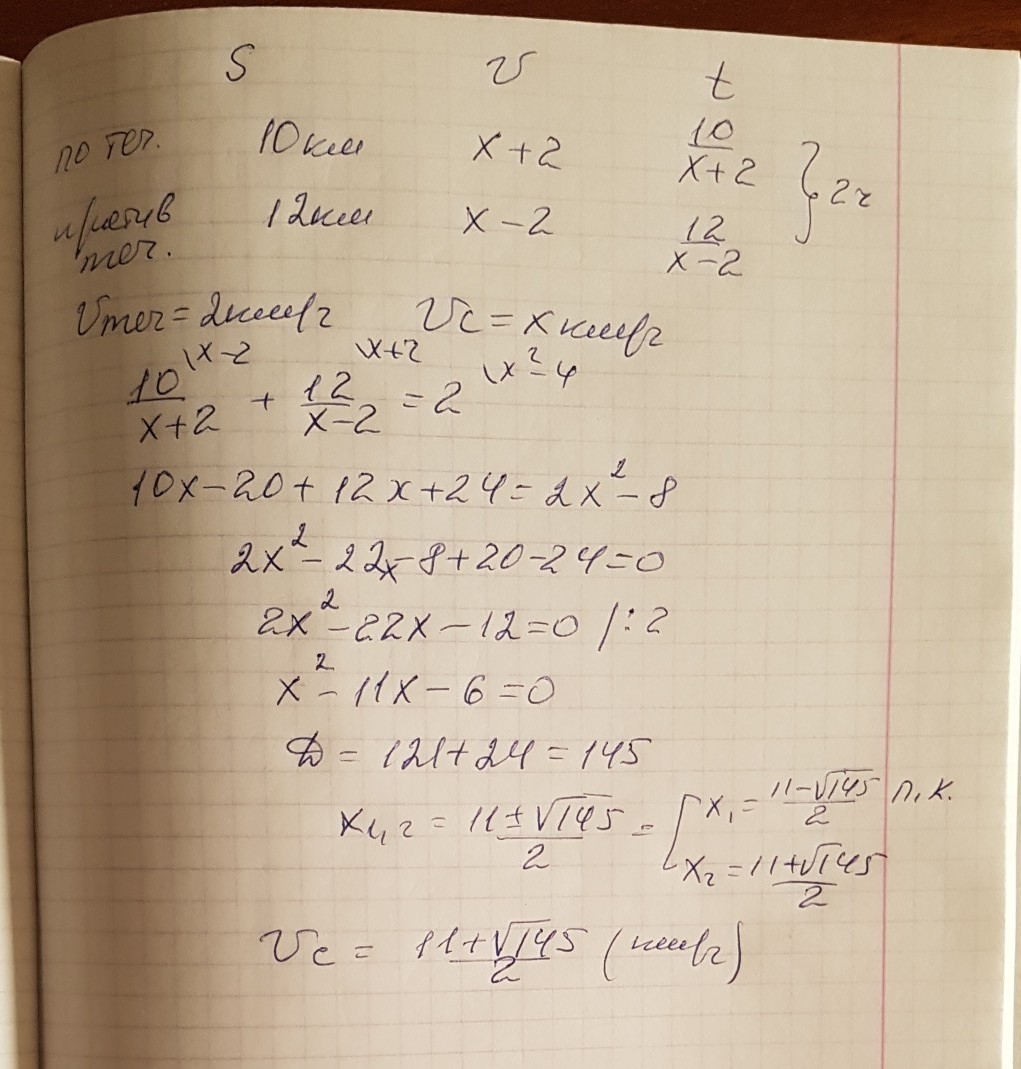 S v t
по теч. 10 км x+2 10/(x+2)
против теч. 12 км x-2 12/(x-2) } 2ч
Vтеч = 2 км/ч Vc = x км/ч
10/(x+2) \x-2 + 12/(x-2) \x+2 = 2 \x²-4
10x-20+12x+24=2x²-8
2x²-22x-8+20-24=0
2x²-22x-12=0 /:2
x²-11x-6=0
D = 121+24=145
x1,2 = (11±√145)/2 = [ x1 = (11-√145)/2 п.к.
x2 = (11+√145)/2
Vc = (11+√145)/2 (км/ч)